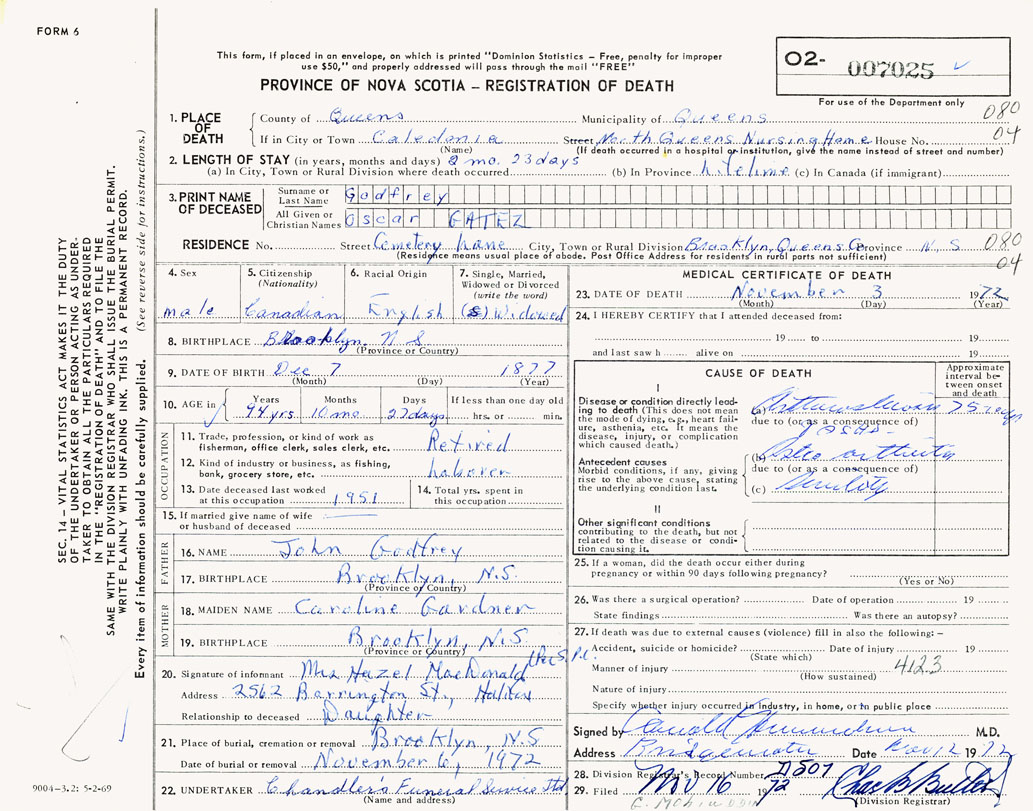 FORM 6
This form, if placed in an envelope, on which is printed "Dominion Statistics – Free, penalty for improper
use $50," and properly addressed will pass through the mail "FREE"
PROVINCE OF NOVA SCOTIA – REGISTRATION OF DEATH
O2- 007025
For use of the Department only
1. PLACE OF DEATH
County of Queens Municipality of Queens 080
If in City or Town Caledonia Street North Queens Nursing Home House No. 04
(Name) (If death occurred in a hospital or institution, give the name instead of street and number)
2. LENGTH OF STAY (in years, months and days) 2 mo. 23 days
(a) In City, Town or Rural Division where death occurred (b) In Province lifetime (c) In Canada (if immigrant)
3. PRINT NAME OF DECEASED
Surname or Last Name Godfrey
All Given or Christian Names Oscar
RESIDENCE No. Street Cemetery Lane City, Town or Rural Division Brooklyn, Queens Co Province N. S 080
(Residence means usual place of abode. Post Office Address for residents in rural parts not sufficient) 04
4. Sex male
5. Citizenship (Nationality) Canadian
6. Racial Origin English
7. Single, Married, Widowed or Divorced (write the word) Widowed
8. BIRTHPLACE Brooklyn N S
(Province or Country)
9. DATE OF BIRTH Dec 7 1877
(Month) (Day) (Year)
10. AGE in Years 94 yrs Months 10 mo Days 27 days If less than one day old hrs. or min.
OCCUPATION
11. Trade, profession, or kind of work as fisherman, office clerk, sales clerk, etc. Retired
12. Kind of industry or business, as fishing, bank, grocery store, etc. laborer
13. Date deceased last worked at this occupation 1951
14. Total yrs. spent in this occupation
15. If married give name of wife or husband of deceased
FATHER
16. NAME John Godfrey
17. BIRTHPLACE Brooklyn, N.S.
(Province or Country)
MOTHER
18. MAIDEN NAME Caroline Gardner
19. BIRTHPLACE Brooklyn, N.S.
(Province or Country)
20. Signature of informant Mrs Hazel MacDonald
Address 2562 Barrington St., Halifax
Relationship to deceased Daughter
21. Place of burial, cremation or removal Brooklyn, N.S
Date of burial or removal November 6, 1972
22. UNDERTAKER Chandler's Funeral Service Ltd
(Name and address)
MEDICAL CERTIFICATE OF DEATH
23. DATE OF DEATH November 3 1972
(Month) (Day) (Year)
24. I HEREBY CERTIFY that I attended deceased from:
19 to 19
and last saw h alive on 19
CAUSE OF DEATH
Approximate interval between onset and death
I
Disease or condition directly leading to death (This does not mean the mode of dying, e.g., heart failure, asthenia, etc. It means the disease, injury, or complication which caused death.)
(a)
due to (or as a consequence of)
Antecedent causes
Morbid conditions, if any, giving rise to the above cause, stating the underlying condition last.
(b) Osteo arthritis
due to (or as a consequence of)
(c) Senility
II
Other significant conditions contributing to the death, but not related to the disease or condition causing it.
25. If a woman, did the death occur either during pregnancy or within 90 days following pregnancy?
(Yes or No)
26. Was there a surgical operation? Date of operation 19
State findings Was there an autopsy?
27. If death was due to external causes (violence) fill in also the following: –
Accident, suicide or homicide? Date of injury 19
(State which)
Manner of injury 412.3
(How sustained)
Nature of injury
Specify whether injury occurred in industry, in home, or in public place
Signed by M.D.
Address Bridgewater Date Nov 12 1972
28. Division Registrar's Record Number
29. Filed Nov 16 1972
(Division Registrar)
9004-3.2: 5-2-69
SEC. 14 – VITAL STATISTICS ACT MAKES IT THE DUTY
OF THE UNDERTAKER OR PERSON ACTING AS UNDER-
TAKER TO OBTAIN ALL THE PARTICULARS REQUIRED
IN THE "REGISTRATION OF DEATH" AND TO FILE THE
SAME WITH THE DIVISION REGISTRAR WHO SHALL ISSUE THE BURIAL PERMIT.
WRITE PLAINLY WITH UNFADING INK. THIS IS A PERMANENT RECORD.
Every item of information should be carefully supplied. (See reverse side for instructions.)